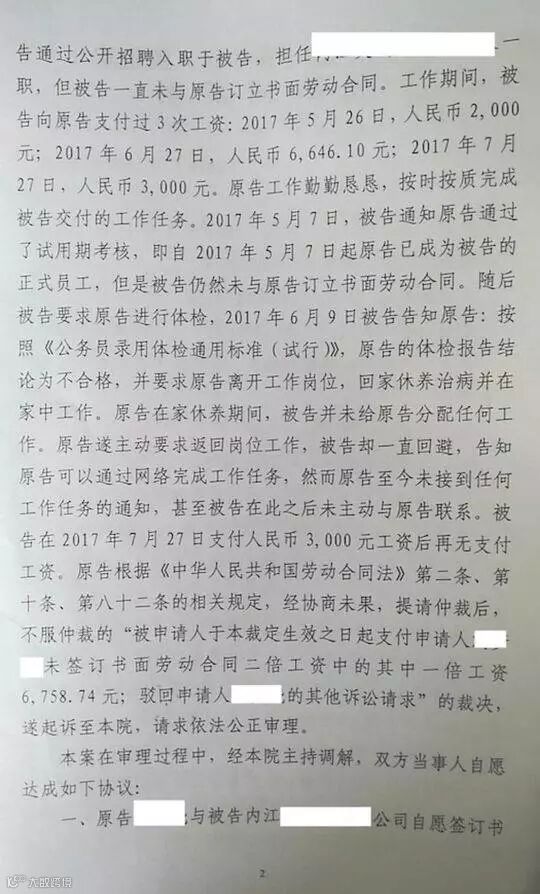 告通过公开招聘入职于被告，担任
职，但被告一直未与原告订立书面劳动合同。工作期间，被
告向原告支付过3次工资：2017年5月26日，人民币2,000
元；2017年6月27日，人民币6,646.10元；2017年7月
27日，人民币3,000元。原告工作勤勤恳恳，按时按质完成
被告交付的工作任务。2017年5月7日，被告通知原告通过
了试用期考核，即自2017年5月7日起原告已成为被告的
正式员工，但是被告仍然未与原告订立书面劳动合同。随后
被告要求原告进行体检，2017年6月9日被告告知原告：按
照《公务员录用体检通用标准（试行）》，原告的体检报告结
论为不合格，并要求原告离开工作岗位，回家休养治病并在
家中工作。原告在家休养期间，被告并未给原告分配任何工
作。原告遂主动要求返回岗位工作，被告却一直回避，告知
原告可以通过网络完成工作任务，然而原告至今未接到任何
工作任务的通知，甚至被告在此之后未主动与原告联系。被
告在2017年7月27日支付人民币3,000元工资后再无支付
工资。原告根据《中华人民共和国劳动合同法》第二条、第
十条、第八十二条的相关规定，经协商未果，提请仲裁后，
不服仲裁的“被申请人于本裁定生效之日起支付申请人
未签订书面劳动合同二倍工资中的其中一倍工资
6,758.74元；驳回申请人 的其他诉讼请求”的裁决，
遂起诉至本院，请求依法公正审理。
本案在审理过程中，经本院主持调解，双方当事人自愿
达成如下协议：
一、原告 与被告内江 公司自愿签订书
2
大数跨境